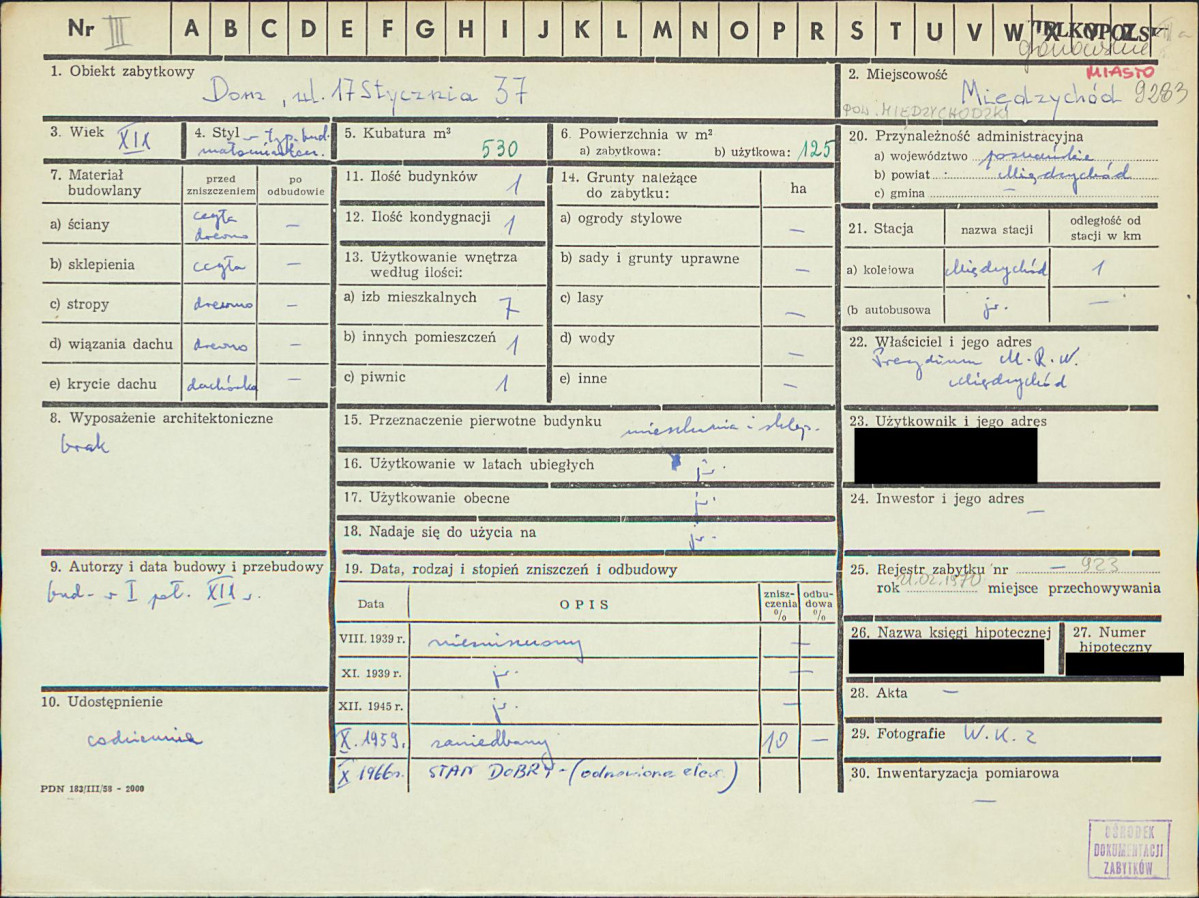 Nr III A B C D E F G H I J K L M N O P R S T U V W X Y Z
gorzowskie
1. Obiekt zabytkowy
Dom, ul. 17 Stycznia 37
2. Miejscowość
MIASTO
Międzychód 9283
POW. MIĘDZYCHODZKI
3. Wiek XIX
4. Styl - typ. bud.
małomiasteczk.
5. Kubatura m³
530
6. Powierzchnia w m²
a) zabytkowa: b) użytkowa: 125
7. Materiał budowlany
przed zniszczeniem
po odbudowie
a) ściany cegła drewno —
b) sklepienia cegła —
c) stropy drewno —
d) wiązania dachu drewno —
e) krycie dachu dachówka —
8. Wyposażenie architektoniczne
brak
9. Autorzy i data budowy i przebudowy
bud. w I poł. XIX w.
10. Udostępnienie
codziennie
PDN 183/III/58 - 2000
11. Ilość budynków 1
12. Ilość kondygnacji 1
13. Użytkowanie wnętrza
według ilości:
a) izb mieszkalnych 7
b) innych pomieszczeń 1
c) piwnic 1
14. Grunty należące
do zabytku:
ha
a) ogrody stylowe —
b) sady i grunty uprawne —
c) lasy —
d) wody —
e) inne —
15. Przeznaczenie pierwotne budynku mieszkania i sklep.
16. Użytkowanie w latach ubiegłych j.w.
17. Użytkowanie obecne j.w.
18. Nadaje się do użycia na j.w.
19. Data, rodzaj i stopień zniszczeń i odbudowy
Data OPIS znisz-czenia % odbu-dowa %
VIII. 1939 r. niezniszczony —
XI. 1939 r. j.w. —
XII. 1945 r. j.w. —
X. 1959r. zaniedbany 10 —
X 1966r. STAN DOBRY - (odnowiona elew.)
20. Przynależność administracyjna
a) województwo poznańskie
b) powiat Międzychód
c) gmina —
21. Stacja
nazwa stacji
odległość od
stacji w km
a) kolejowa Międzychód 1
(b autobusowa j.w. —
22. Właściciel i jego adres
Prezydium M.R.N.
Międzychód
23. Użytkownik i jego adres
24. Inwestor i jego adres
—
25. Rejestr zabytku nr — 923
rok 21.02.1970 miejsce przechowywania
26. Nazwa księgi hipotecznej
27. Numer
hipoteczny
28. Akta —
29. Fotografie W.K.Z
30. Inwentaryzacja pomiarowa
—
OŚRODEK
DOKUMENTACJI
ZABYTKÓW